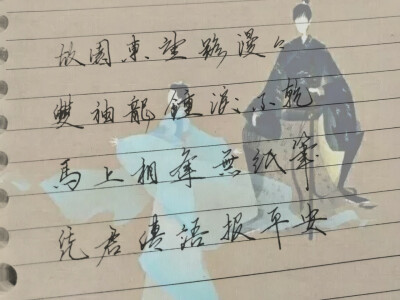 故園東望路漫々
雙袖龍鍾淚不乾
馬上相逢無紙筆
凭君傳語报平安